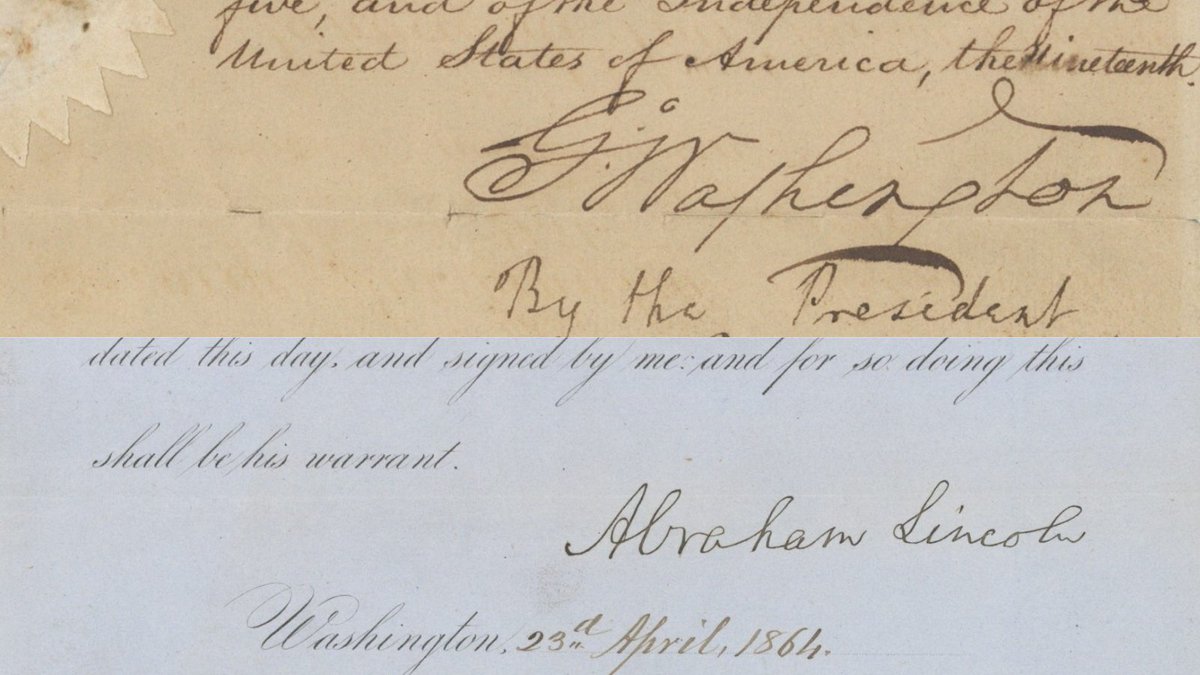 five, and of the Independence of the
United States of America, the Nineteenth.
G:º Washington
By the President
dated this day, and signed by me: and for so doing this
shall be his warrant.
Abraham Lincoln
Washington, 23d April, 1864.